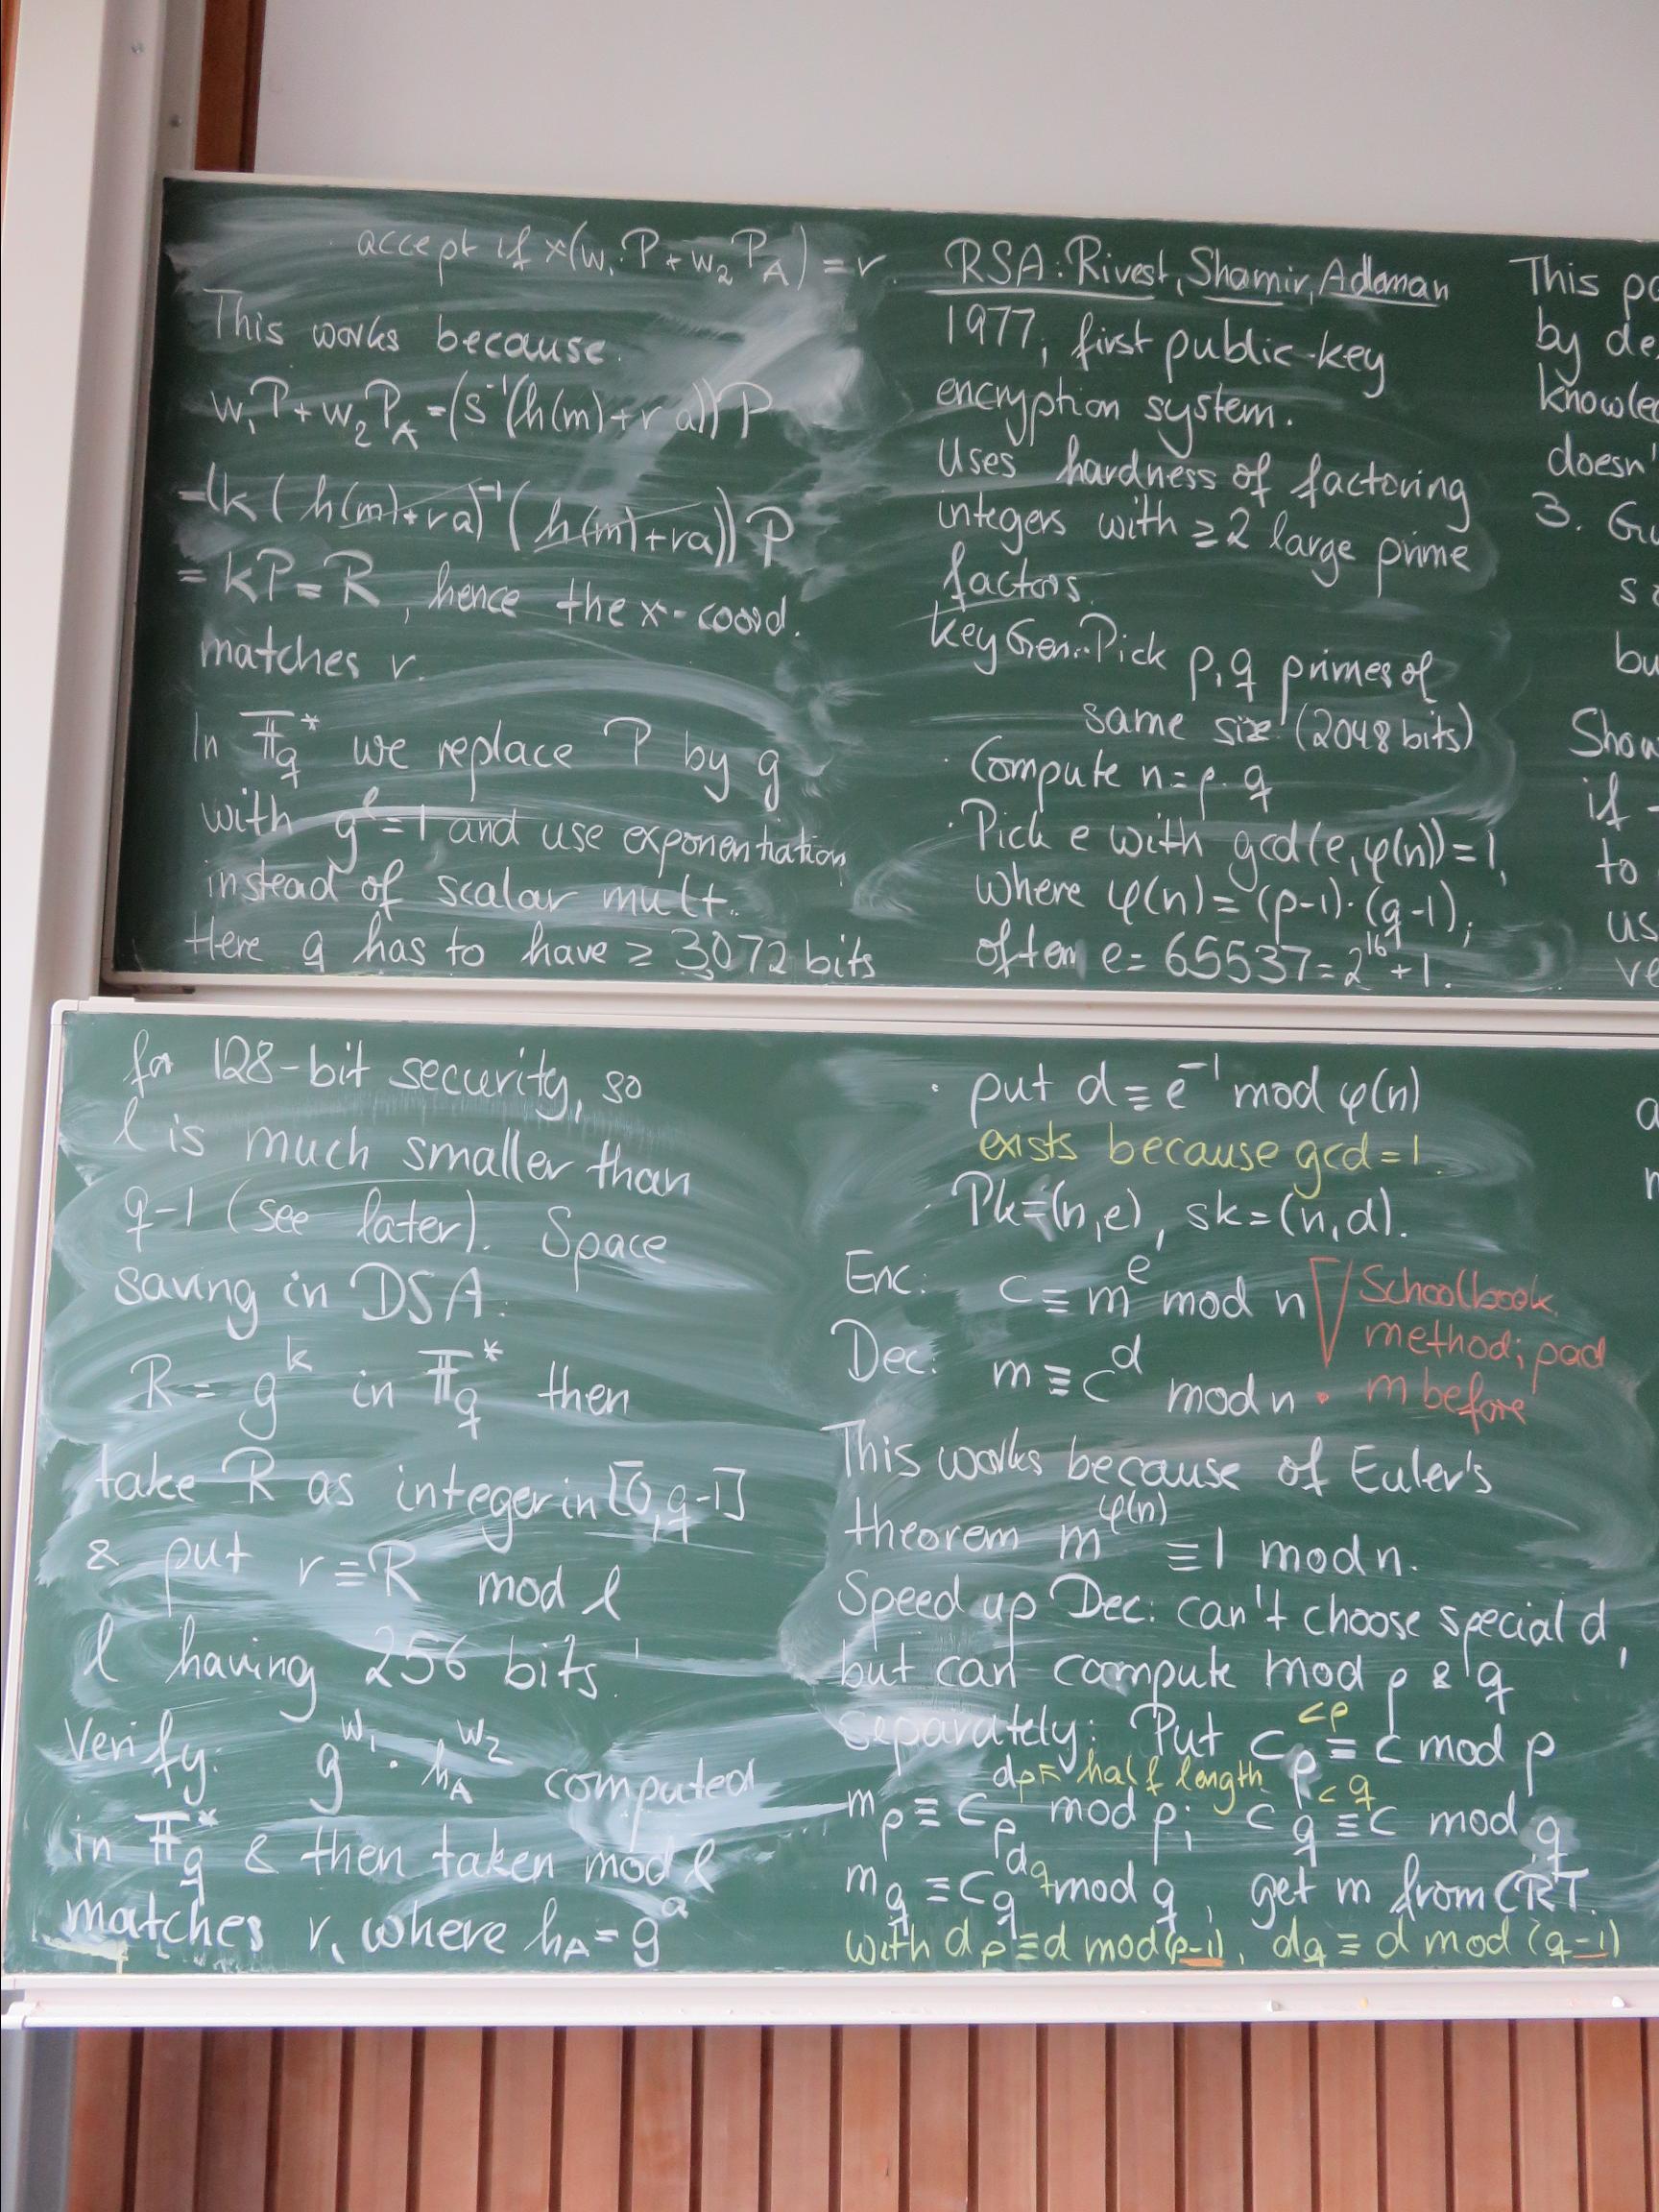 accept if x(w₁P + w₂P_A) = r.
This works because
w₁P + w₂P_A = (s⁻¹(h(m) + r a)) P
= (k (h(m)+ra)⁻¹ (h(m)+ra)) P
= kP = R, hence the x-coord.
matches r.
In 𝔽_q* we replace P by g
with g^ℓ = 1 and use exponentiation
instead of scalar mult.
Here q has to have ≥ 3072 bits
for 128-bit security, so
ℓ is much smaller than
q-1 (see later). Space
saving in DSA:
R = g^k in 𝔽_q* then
take R as integer in [0, q-1]
& put r ≡ R mod ℓ
ℓ having 256 bits!
Verify: g^w₁ · h_A^w₂ computed
in 𝔽_q* & then taken mod ℓ
matches r, where h_A = g^a
RSA: Rivest, Shamir, Adleman
1977, first public-key
encryption system.
Uses hardness of factoring
integers with ≥ 2 large prime
factors.
KeyGen: · Pick p, q primes of
same size (2048 bits)
· Compute n = p · q
· Pick e with gcd(e, φ(n)) = 1,
where φ(n) = (p-1) · (q-1);
often e = 65537 = 2^16 + 1.
· put d ≡ e⁻¹ mod φ(n)
exists because gcd = 1.
· Pk = (n, e), sk = (n, d).
Enc: c ≡ m^e mod n
Dec: m ≡ c^d mod n
! Schoolbook
method; pad
m before
This works because of Euler's
theorem m^φ(n) ≡ 1 mod n.
Speed up Dec: can't choose special d,
but can compute mod p & q
<p
separately: Put c_p ≡ c mod p
half length <q
m_p ≡ c_p^d_p mod p; c_q ≡ c mod q
m_q ≡ c_q^d_q mod q, get m from CRT.
with d_p ≡ d mod (p-1), d_q ≡ d mod (q-1)
This
by
doesn'
3.
if
to